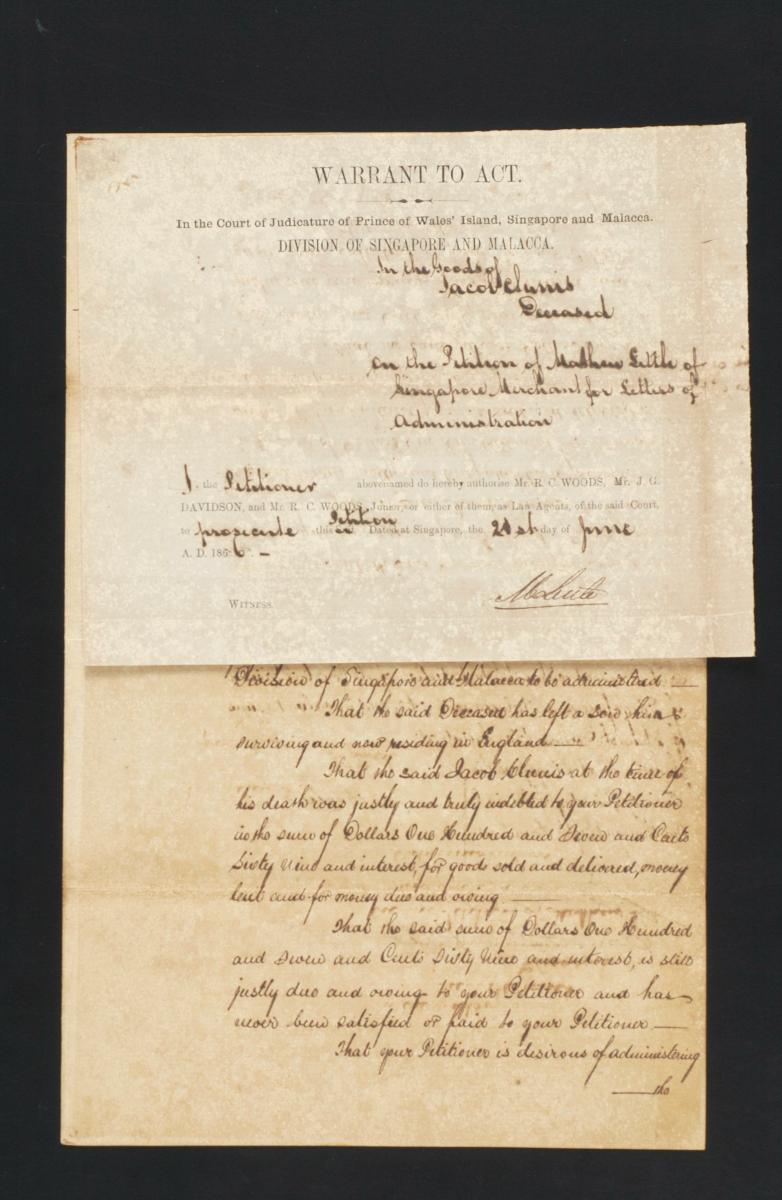 WARRANT TO ACT.
In the Court of Judicature of Prince of Wales' Island, Singapore and Malacca.
DIVISION OF SINGAPORE AND MALACCA.
In the Goods of
Jacob Clunis
Deceased
On the Petition of Mathew Little of
Singapore Merchant for Letters of
Administration
I, the Petitioner abovenamed do hereby authorise Mr. R. C. WOODS, Mr. J. G.
DAVIDSON, and Mr. R. C. WOODS, Junior, or either of them, as Law Agents, of the said Court,
to prosecute this Petition Dated at Singapore, the 21st day of June
A. D. 1866.
WITNESS.
M Little
Division of Singapore and Malacca to be administered
That the said Deceased has left a Son him
surviving and now residing in England
That the said Jacob Clunis at the time of
his death was justly and truly indebted to your Petitioner
in the sum of Dollars One Hundred and Seven and Cents
Sixty Nine and interest, for goods sold and delivered, money
lent and for money due and owing
That the said sum of Dollars One Hundred
and Seven and Cents Sixty Nine and interest, is still
justly due and owing to your Petitioner and has
never been satisfied or paid to your Petitioner
That your Petitioner is desirous of administering
the